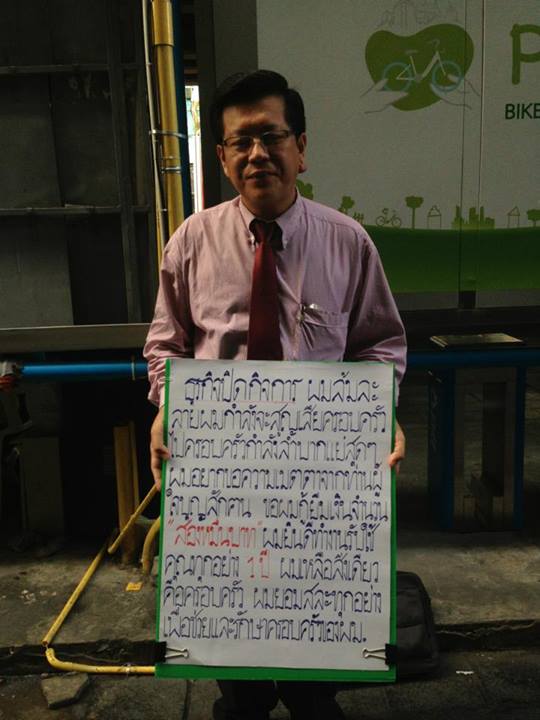 P
BIKE
ธุรกิจปิดกิจการ ผมล้มละ
ลายผมกำลังจะสูญเสียครอบครัว
ไปครอบครัวกำลังลำบากแย่สุดๆ
ผมอยากขอความเมตตาจากท่านผู้
ใจบุญสักคน ขอผมกู้ยืมเงินจำนวน
"สองหมื่นบาท" ผมยินดีทำงานรับใช้
คุณทุกอย่าง 1 ปี ผมเหลือสิ่งเดียว
คือครอบครัว ผมยอมสละทุกอย่าง
เพื่อช่วยและรักษาครอบครัวของผม.